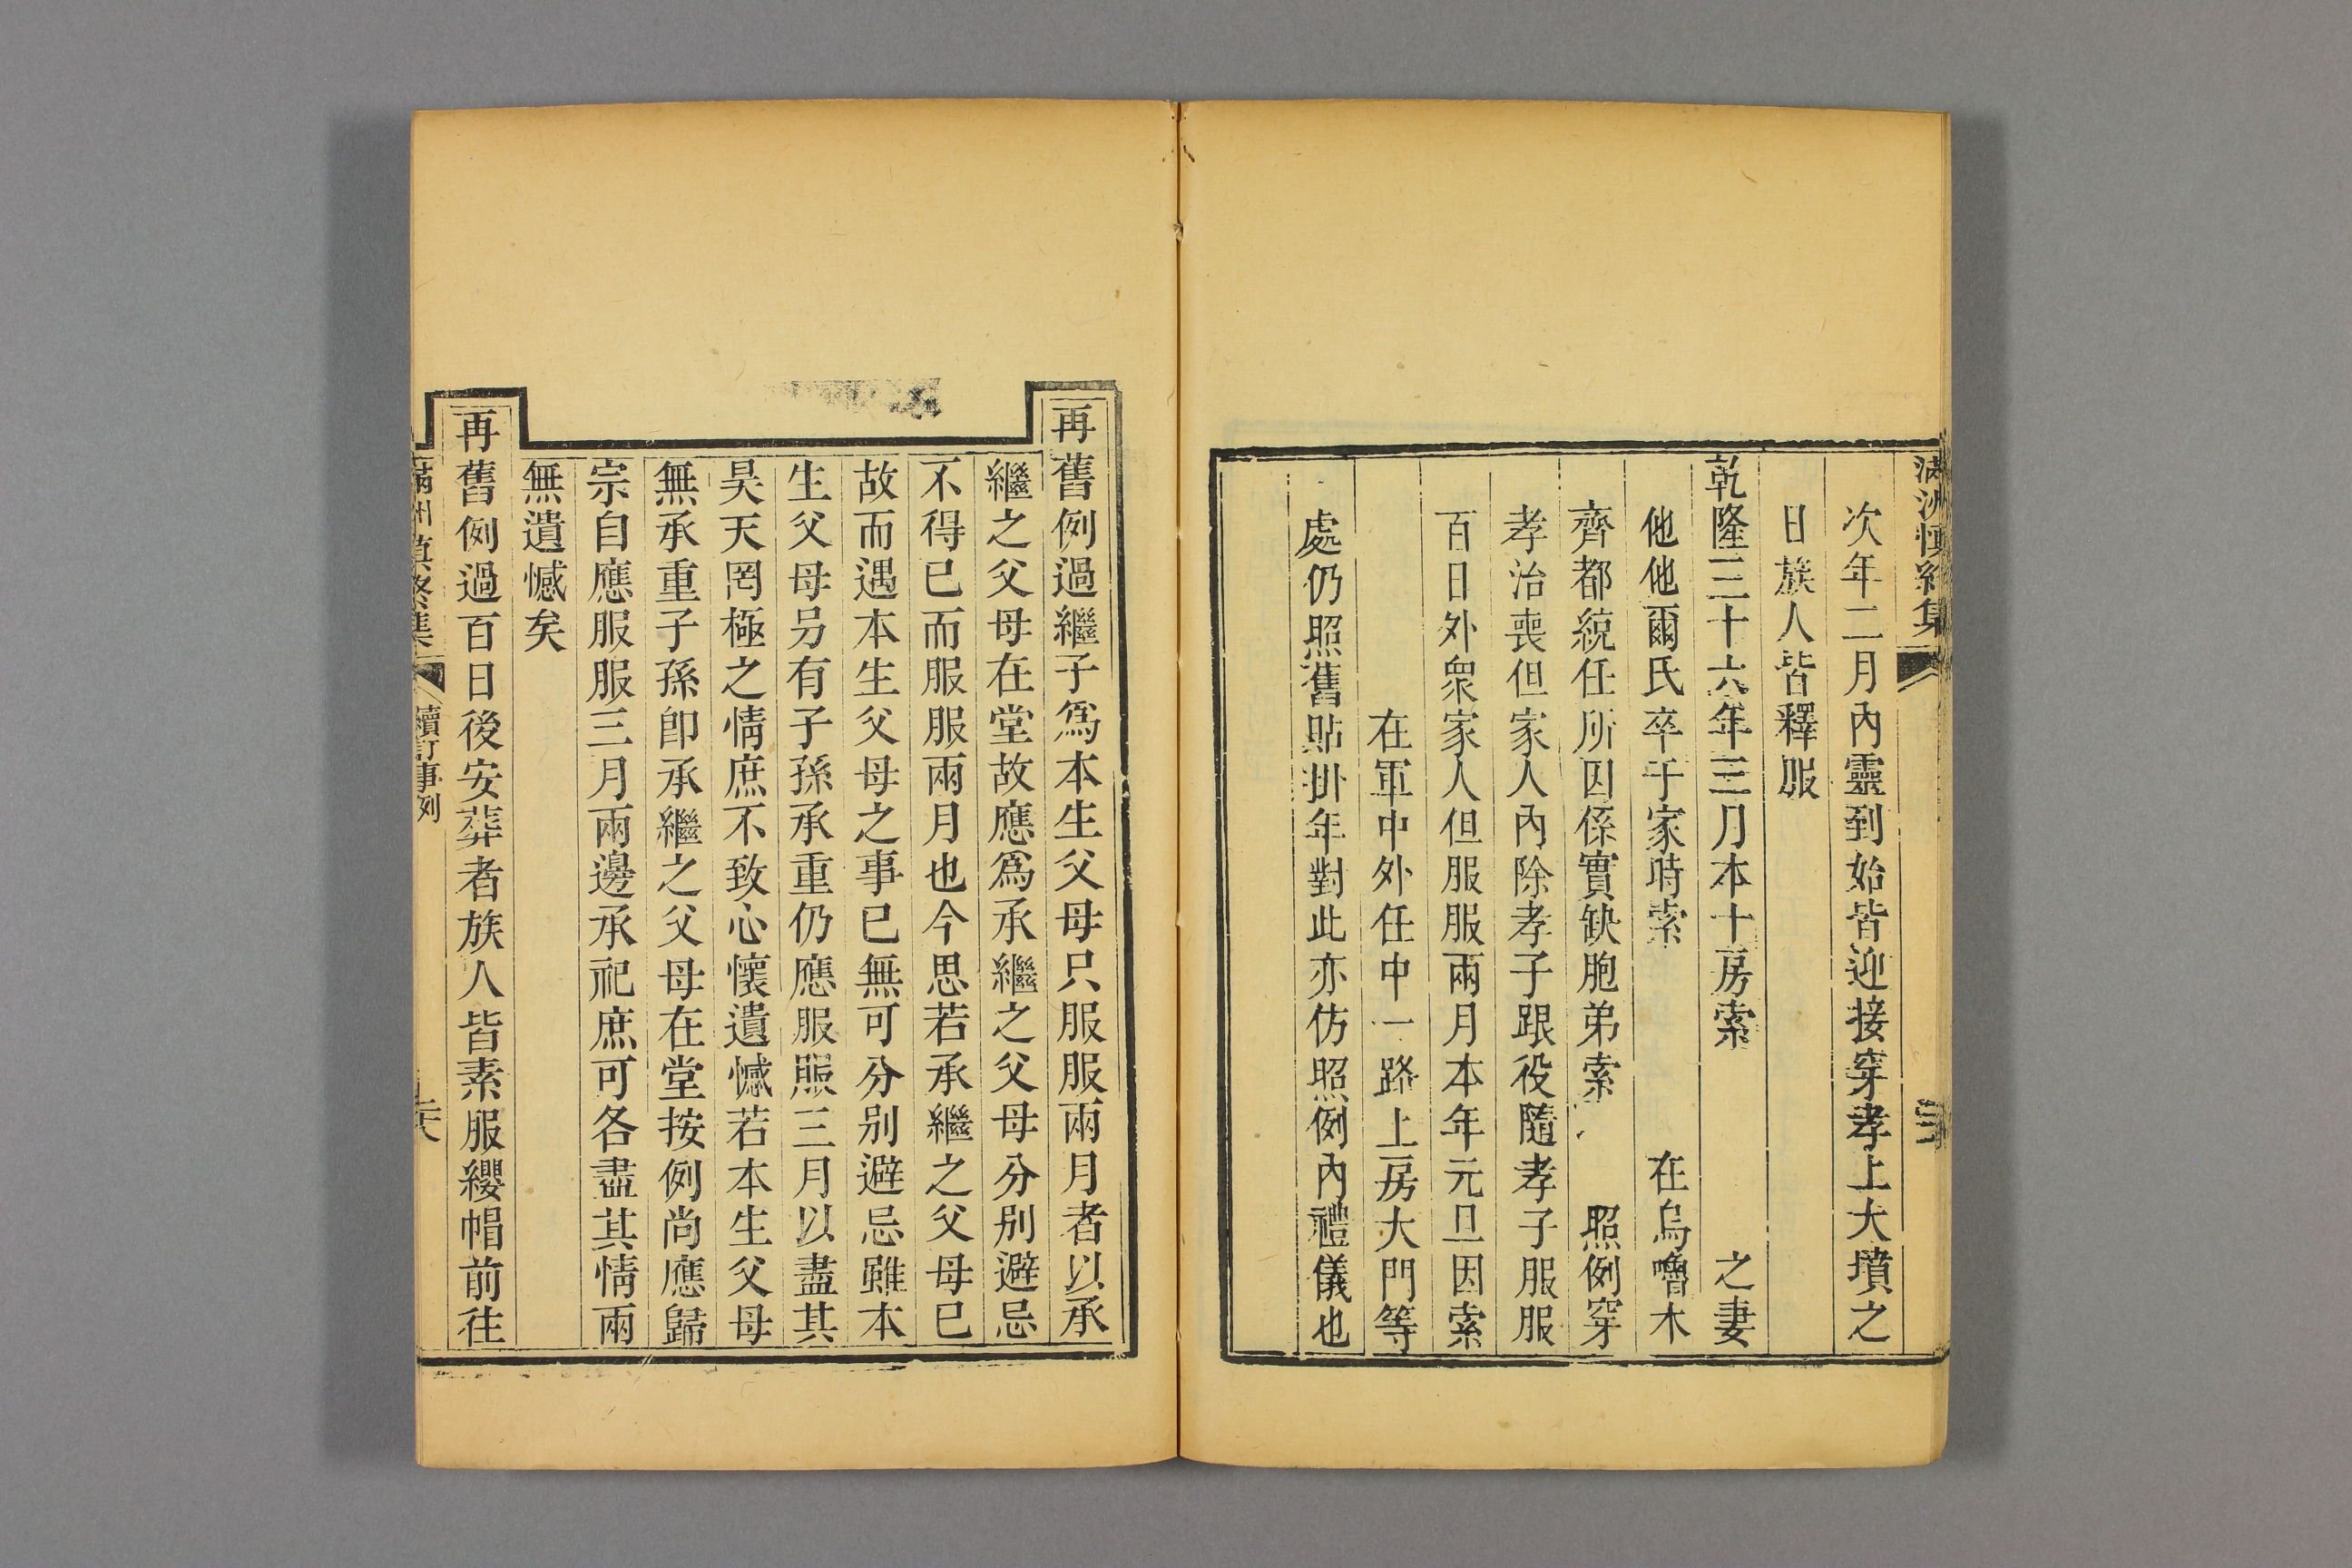 滿洲慎終集
次年二月內靈到始皆迎接穿孝上大墳之
日族人皆釋服
乾隆三十六年三月本十房索 之妻
他他爾氏卒于家時索 在烏嚕木
齊都統任所因係實缺胞弟索 照例穿
孝治喪但家人內除孝子跟役隨孝子服服
百日外衆家人但服服兩月本年元旦因索
在軍中外任中一路上房大門等
處仍照舊貼掛年對此亦仿照例內禮儀也
再舊例過繼子爲本生父母只服服兩月者以承
繼之父母在堂故應爲承繼之父母分別避忌
不得已而服服兩月也今思若承繼之父母已
故而遇本生父母之事已無可分别避忌雖本
生父母另有子孫承重仍應服服三月以盡其
昊天罔極之情庶不致心懷遺憾若本生父母
無承重子孫卽承繼之父母在堂按例尚應歸
宗自應服服三月兩邊承祀庶可各盡其情兩
無遺憾矣
再舊例過百日後安葬者族人皆素服纓帽前往
滿洲慎終集 續訂事例